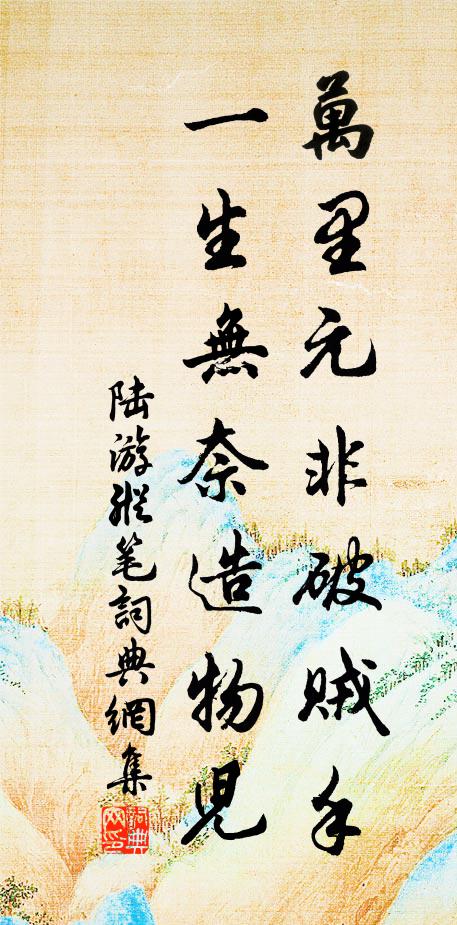 萬里元非破賊手
一生無奈造物兒
陸游縱笔詞典網集
詞典網印